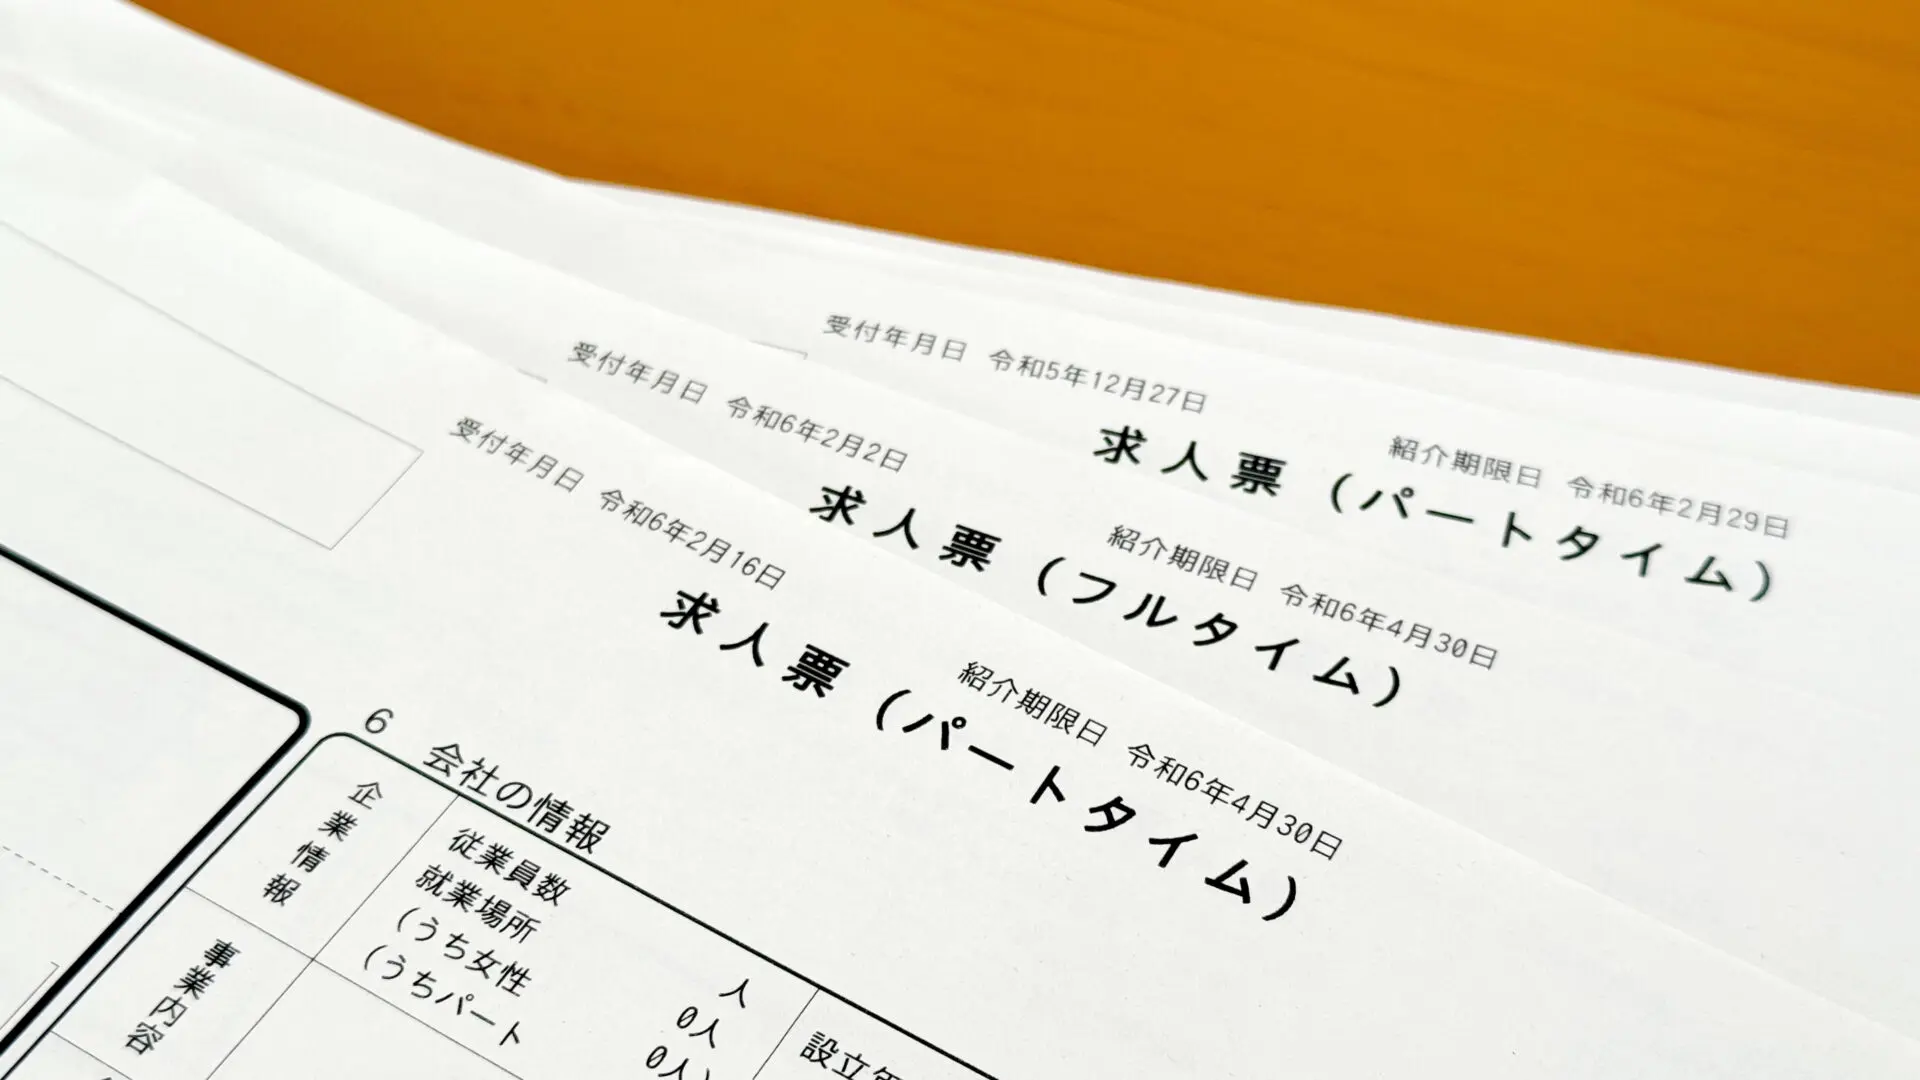 受付年月日 令和5年12月27日
紹介期限日 令和6年2月29日
求人票（パートタイム）
受付年月日 令和6年2月2日
紹介期限日 令和6年4月30日
求人票（フルタイム）
受付年月日 令和6年2月16日
紹介期限日 令和6年4月30日
求人票（パートタイム）
6 会社の情報
企業情報
従業員数
就業場所 人
（うち女性 0人
（うちパート 0人）
設立
事業内容